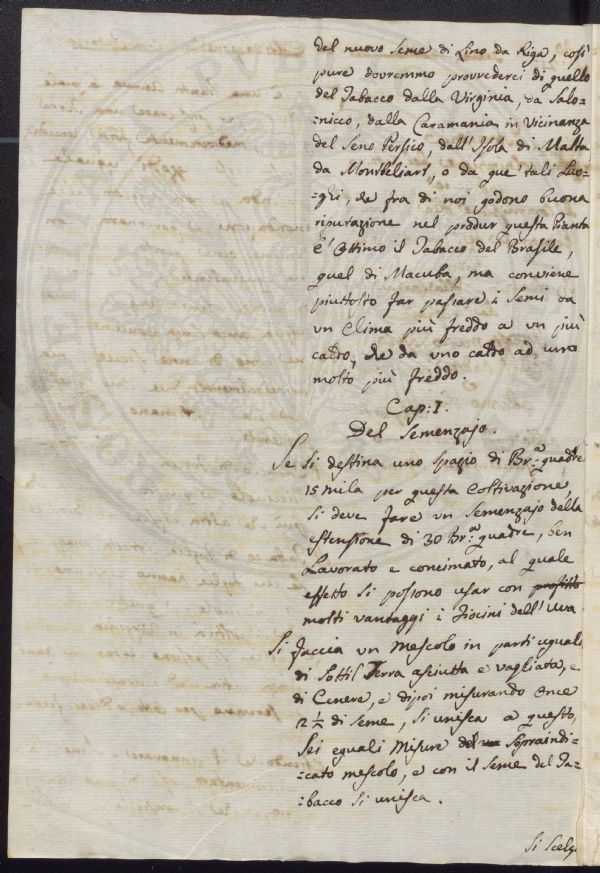 del nuovo Seme di Lino da Riga, così
pure dovremmo provvederci di quello
del Tabacco dalla Virginia, da Salo-
=nicco, dalla Caramania in Vicinanza
del Seno Persico, dall'Isola di Malta
da Montbeliart, o da que' tali Luo-
=ghi, che fra di noi godono buona
riputazione nel produr questa Pianta
E' Ottimo il Tabacco del Brasile,
quel di Macuba, ma conviene
piuttosto far passare i Semi da
un Clima più freddo a un più
caldo, che da uno caldo ad uno
molto più freddo.
Cap: I.
Del Semenzajo.
Se si destina uno spazio di Br.a quadre
15 mila per questa Coltivazione,
si deve fare un Semenzajo della
estensione di 30 Br.a quadre, ben
Lavorato e concimato, al quale
effetto si possono usar con profitto
molti vantaggi i Fiocini dell'Uva
Si faccia un mescolo in parti uguali
di Sottil Terra asciutta e vagliata, e
di Cenere, e dipoi misurando Once
2 1/2 di Seme, si unisca a questo,
Sei eguali Misure del Sopraindi-
=cato mescolo, e con il Seme del Ta-
=bacco si unisca.
Si Scelg